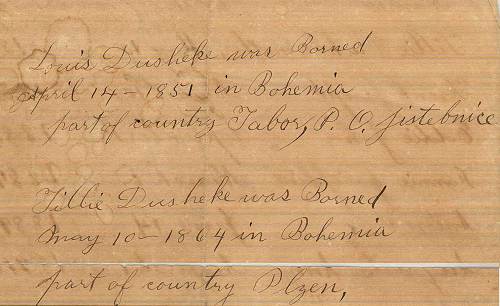 Louis Dusheke was Borned
April 14 - 1851 in Bohemia
part of country Tabor, P. O. Jistebnice
Tillie Dusheke was Borned
May 10 - 1864 in Bohemia
part of country Plzen,